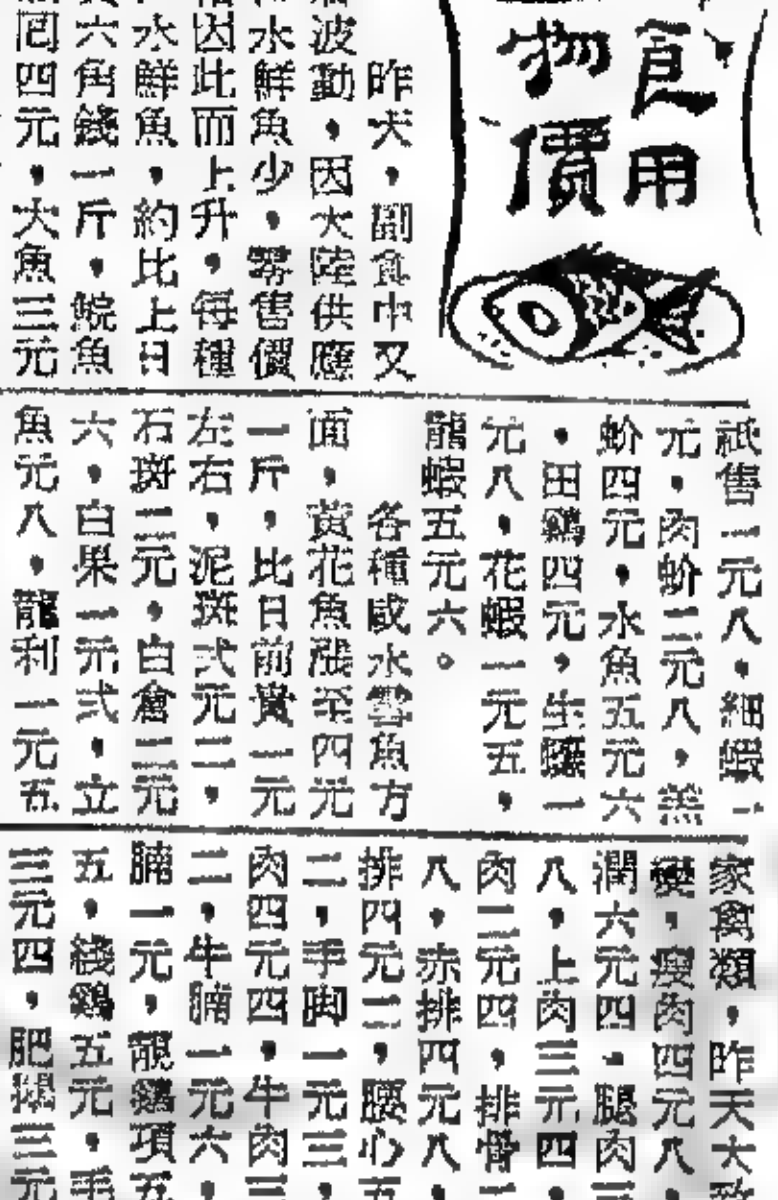 食用
物價
昨天，副食中又
波動，因大陸供應
水鮮魚少，零售價
因此而上升，每種
水鮮魚，約比上日
六角錢一斤，鯇魚
四元，大魚三元
祇售一元八，細蝦一
元，肉蚧三元八，羔
蚧四元，水魚五元六
，田鷄四元，生蠔一
元八，花蝦一元五，
龍蝦五元六。
各種咸水雪魚方
面，黃花魚漲至四元
一斤，比日前貴一元
左右，泥斑弍元二，
石斑三元，白倉三元
六，白果一元弍，立
魚元八，龍利一元五
家禽類，昨天大致
變，瘦肉四元八，
潤六元四，腿肉三
八，上肉三元四，
肉二元四，排骨
八，赤排四元八，
排四元二，腰心五
二，手脚一元三，
肉四元四，牛肉三
二，牛腩一元六，
腩一元，靚鷄項五
五，綫鷄五元，毛
三元四，肥鵝三元